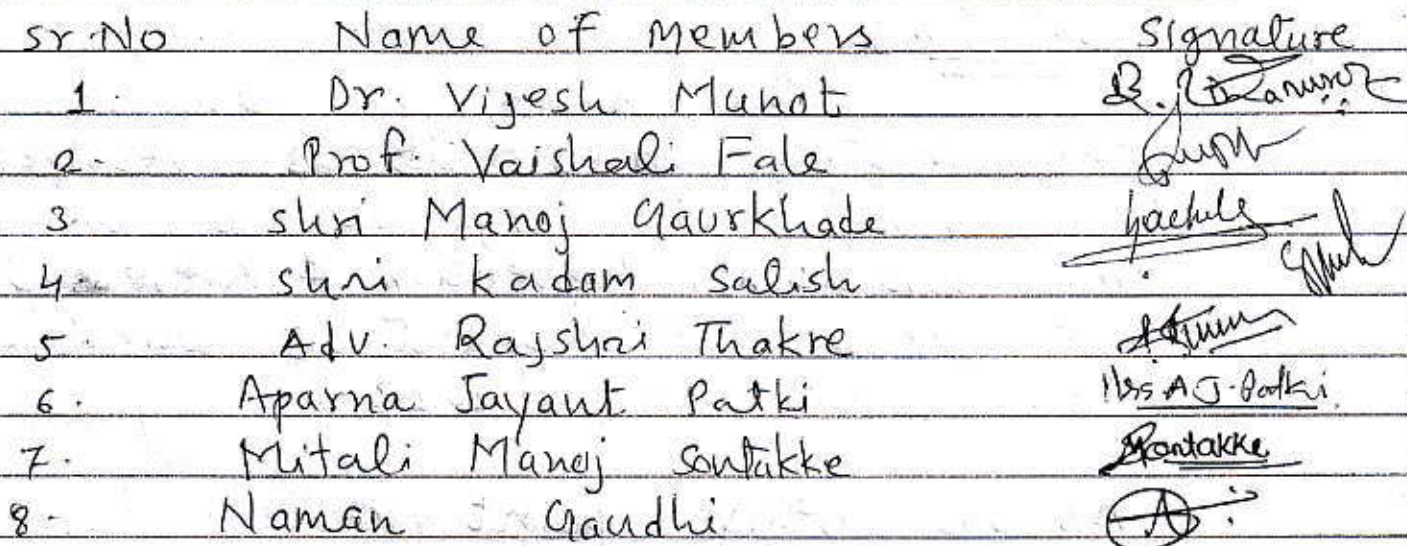 Sr. No Name of Members Signature
1. Dr. Vijesh Munot
2. Prof. Vaishali Fale
3. Shri Manoj Gaurkhade
4. Shri Kadam Salish
5. Adv. Rajshri Thakre
6. Aparna Jayant Patki Mrs A J. Patki
7. Mitali Manoj Sontakke Sontakke
8. Naman Gandhi